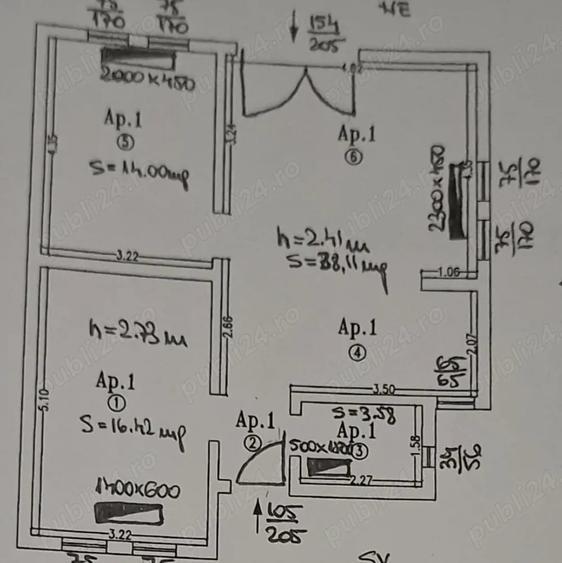 75
170
75
170
154
205
NE
2000 x 450
4.02
Ap.1
5
S=14.00mp
4.35
3.24
Ap.1
6
2300 x 450
75
170
75
170
h=2.41m
S=38,11mp
3.22
1.06
2.66
h=2.73m
Ap.1
4
2.07
Ap.1
1
S=16.42mp
5.10
3.50
S=3.58
Ap.1
2
Ap.1
3
1.58
2.27
1400x600
105
205
3.22
75
75
SV
publi24.ro